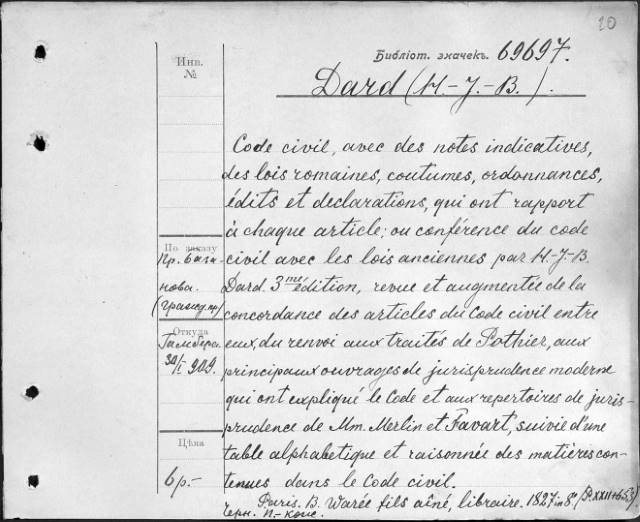 20
Библіот. значекъ. 69697.
Dard (H.-J.-B.).
Инв.
№
Code civil, avec des notes indicatives,
des lois romaines, coutumes, ordonnances,
édits et declarations, qui ont rapport
à chaque article; ou conférence du code
civil avec les lois anciennes par H.-J-B.
Dard. 3me édition, revue et augmentée de la
concordance des articles du Code civil entre
eux, du renvoi aux traités de Pothier, aux
principaux ouvrages de jurisprudence moderne
qui ont expliqué le Code et aux repertoires de juris-
prudence de Mm. Merlin et Favart, suivie d'une
table alphabetique et raisonnée des matières con-
tenues dans le Code civil.
Paris. B. Warée fils aîné, libraire. 1827 in 8°.
По заказу
Пр. Бага-
нова.
Откуда
30/I 909.
Цѣна
6 р.—